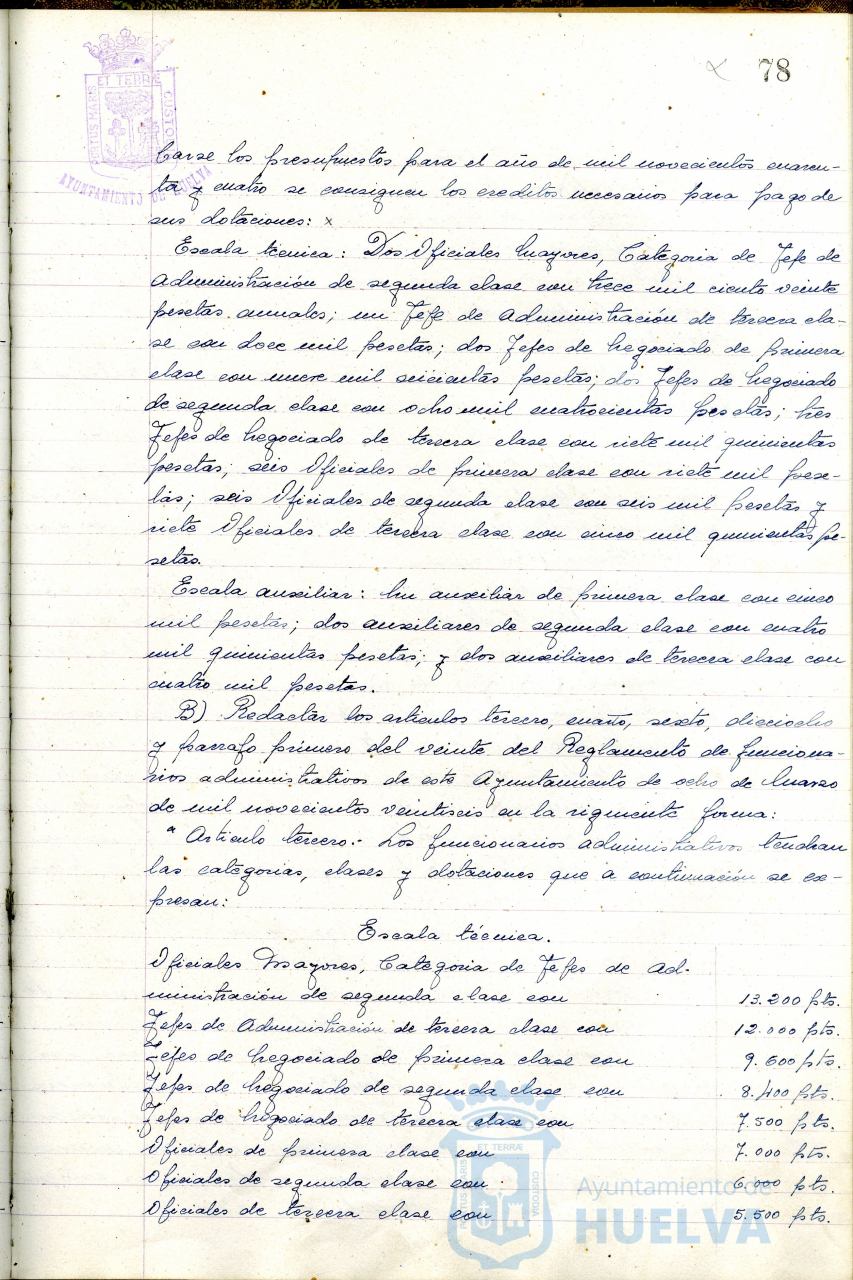 78
PORTUS MARIS ET TERRÆ CUSTODIA
AYUNTAMIENTO DE HUELVA
carse los presupuestos para el año de mil novecientos cuaren-
ta y cuatro se consignen los creditos necesarios para pago de
sus dotaciones: x
Escala técnica: Dos Oficiales Mayores, Categoria de Jefe de
Administración de segunda clase con trece mil ciento veinte
pesetas anuales; un Jefe de Administración de tercera cla-
se con doce mil pesetas; dos Jefes de Negociado de primera
clase con nueve mil seicientas pesetas; dos Jefes de Negociado
de segunda clase con ocho mil cuatrocientas pesetas; tres
Jefes de Negociado de tercera clase con siete mil quinientas
pesetas; seis Oficiales de primera clase con siete mil pese-
tas; seis Oficiales de segunda clase con seis mil pesetas y
siete Oficiales de tercera clase con cinco mil quinientas pe-
setas.
Escala auxiliar: Un auxiliar de primera clase con cinco
mil pesetas; dos auxiliares de segunda clase con cuatro
mil quinientas pesetas; y dos auxiliares de tercera clase con
cuatro mil pesetas.
B) Redactar los articulos tercero, cuarto, sexto, dieciocho
y parrafo primero del veinte del Reglamento de funciona-
rios administrativos de este Ayuntamiento de ocho de Marzo
de mil novecientos veintiseis en la siguiente forma:
" Articulo tercero.- Los funcionarios administrativos tendran
las categorias, clases y dotaciones que a continuación se ex-
presan:
Escala técnica.
Oficiales Mayores, Categoria de Jefes de Ad-
ministración de segunda clase con 13.200 pts.
Jefes de Administración de tercera clase con 12.000 pts.
Jefes de Negociado de primera clase con 9.600 pts.
Jefes de Negociado de segunda clase con 8.400 pts.
Jefes de Negociado de tercera clase con 7.500 pts.
Oficiales de primera clase con 7.000 pts.
Oficiales de segunda clase con 6.000 pts.
Oficiales de tercera clase con 5.500 pts.
PORTUS MARIS ET TERRÆ CUSTODIA
Ayuntamiento de
HUELVA